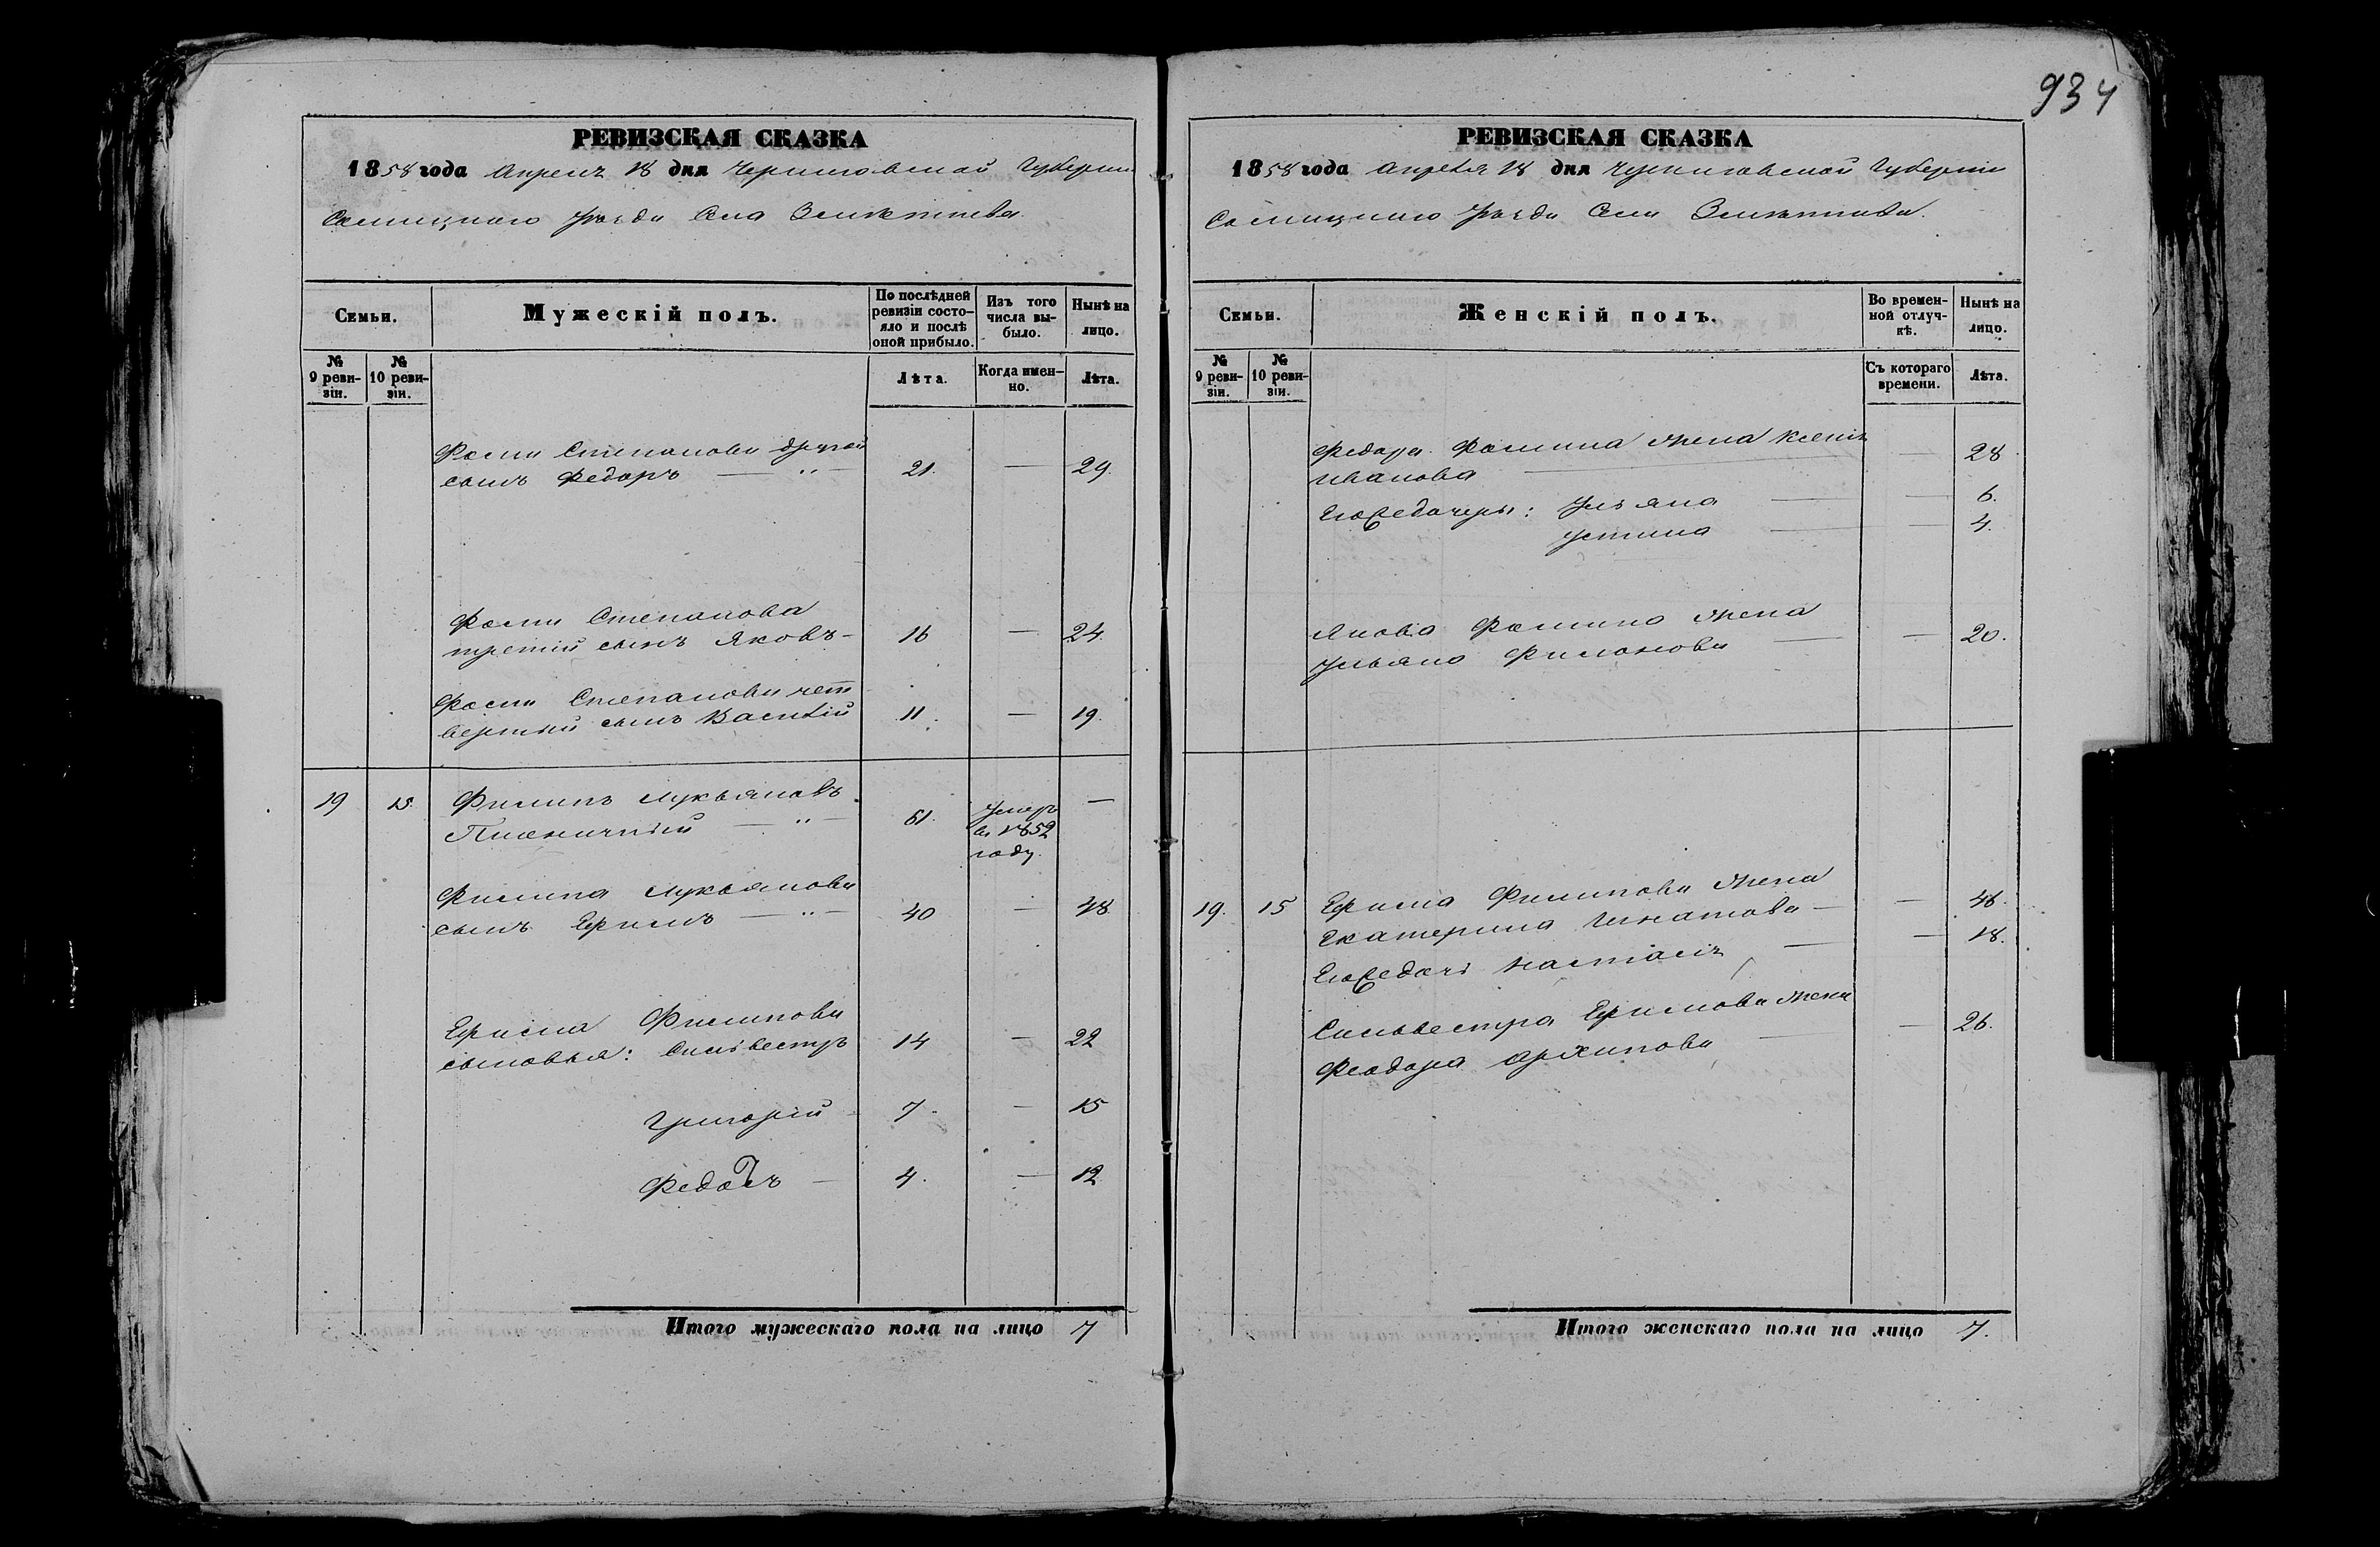 934
РЕВИЗСКАЯ СКАЗКА
1858 года Апреля 18 дня Черниговской Губерніи
Сосницкаго Уѣзда Села
Семьи.
Мужескій полъ.
По послѣдней ревизіи состояло и послѣ оной прибыло.
Изъ того числа выбыло.
Нынѣ на лицо.
№ 9 ревизіи.
№ 10 ревизіи.
Лѣта.
Когда именно.
Лѣта.
Фомы Степанова другой
сынъ Федоръ — „ — 21. — 29.
Фомы Степанова
третій сынъ Яковъ - 16 — 24.
Фомы Степанова чет
вертый сынъ Василій 11. — 19.
19 15. Филипъ Лукьяновъ
Пшеничный — „ — 61. Умеръ —
въ 1852
году.
Филипа Лукьянова
сынъ Ефимъ — „ — 40 — 48.
Ефима Филипова
сыновья: Сильвестръ 14 — 22
Григорій 7. — 15
Федосъ — 4. — 12
Итого мужескаго пола на лицо 7
РЕВИЗСКАЯ СКАЗКА
1858 года Апреля 18 дня Черниговской Губерніи
Сосницкаго Уѣзда Села
Семьи.
Женскій полъ.
Во временной отлучкѣ.
Нынѣ на лицо.
№ 9 ревизіи.
№ 10 ревизіи.
Съ котораго времени.
Лѣта.
Федора Фомина жена Ксенія
Иванова — — 28.
Его дочери: Ульяна — — 6.
Устина — — 4.
Якова Фомина жена
Ульяна Филонова — — 20.
19. 15 Ефима Филипова жена — 46.
Екатерина Игнатова —
Его дочь Настасія — — 18.
Сильвестра Ефимова жена
Феодора Архипова — — 26.
Итого женскаго пола на лицо 7.